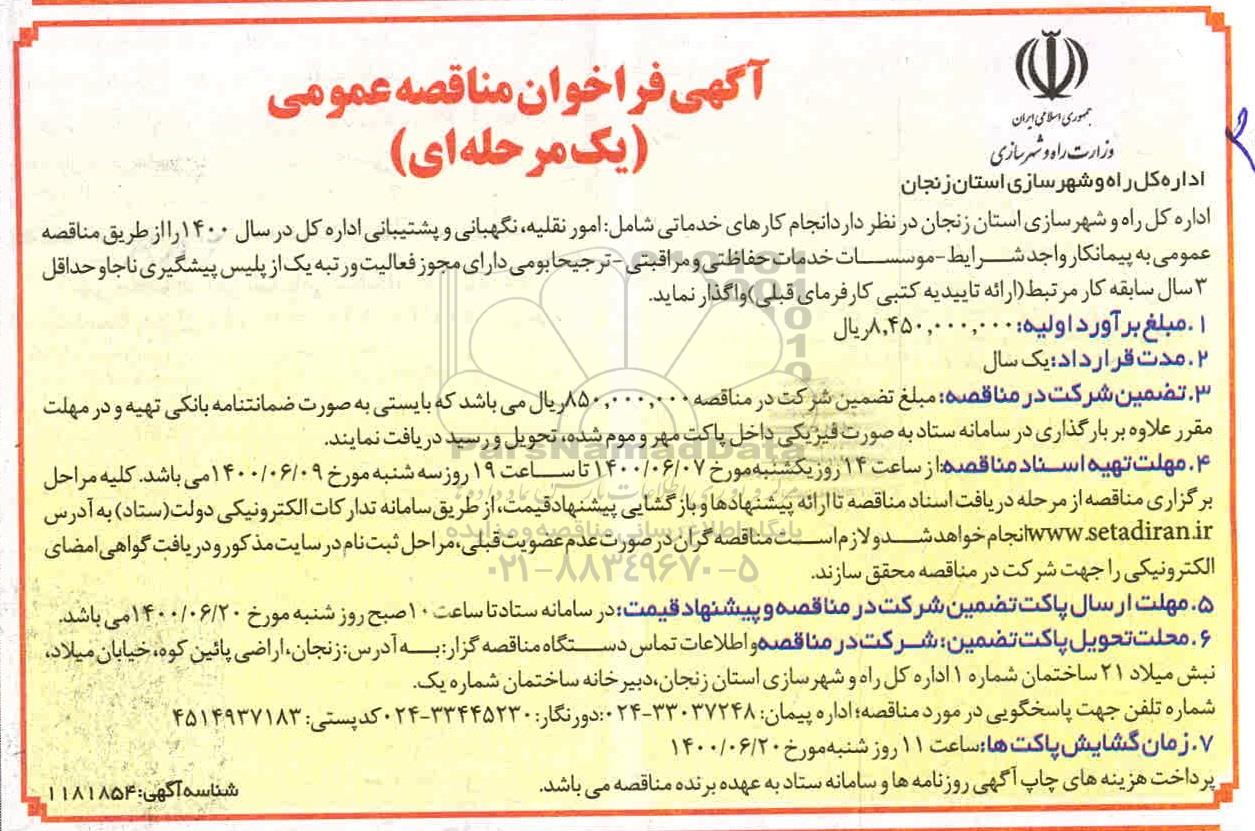 جمهوری اسلامی ایران
وزارت راه و شهرسازی
اداره کل راه و شهرسازی استان زنجان
آگهی فراخوان مناقصه عمومی
(یک مرحله ای)
اداره کل راه و شهرسازی استان زنجان در نظر دارد انجام کارهای خدماتی شامل: امور نقلیه، نگهبانی و پشتیبانی اداره کل در سال ۱۴۰۰ را از طریق مناقصه
عمومی به پیمانکار واجد شرایط-موسسات خدمات حفاظتی و مراقبتی-ترجیحا بومی دارای مجوز فعالیت و رتبه یک از پلیس پیشگیری ناجا و حداقل
۳ سال سابقه کار مرتبط (ارائه تاییدیه کتبی کارفرمای قبلی) واگذار نماید.
۱. مبلغ برآورد اولیه: ۸,۴۵۰,۰۰۰,۰۰۰ ریال
۲. مدت قرارداد: یک سال
۳. تضمین شرکت در مناقصه: مبلغ تضمین شرکت در مناقصه ۸۵۰,۰۰۰,۰۰۰ ریال می باشد که بایستی به صورت ضمانتنامه بانکی تهیه و در مهلت
مقرر علاوه بر بارگذاری در سامانه ستاد به صورت فیزیکی داخل پاکت مهر و موم شده، تحویل و رسید دریافت نمایند.
۴. مهلت تهیه اسناد مناقصه: از ساعت ۱۴ روز یکشنبه مورخ ۱۴۰۰/۰۶/۰۷ تا ساعت ۱۹ روز سه شنبه مورخ ۱۴۰۰/۰۶/۰۹ می باشد. کلیه مراحل
برگزاری مناقصه از مرحله دریافت اسناد مناقصه تا ارائه پیشنهادها و بازگشایی پیشنهاد قیمت، از طریق سامانه تدارکات الکترونیکی دولت (ستاد) به آدرس
www.setadiran.ir انجام خواهد شد و لازم است مناقصه گران در صورت عدم عضویت قبلی، مراحل ثبت نام در سایت مذکور و دریافت گواهی امضای
الکترونیکی را جهت شرکت در مناقصه محقق سازند.
۵. مهلت ارسال پاکت تضمین شرکت در مناقصه و پیشنهاد قیمت: در سامانه ستاد تا ساعت ۱۰ صبح روز شنبه مورخ ۱۴۰۰/۰۶/۲۰ می باشد.
۶. محلت تحویل پاکت تضمین: شرکت در مناقصه و اطلاعات تماس دستگاه مناقصه گزار: به آدرس: زنجان، اراضی پائین کوه، خیابان میلاد،
نبش میلاد ۲۱ ساختمان شماره ۱ اداره کل راه و شهرسازی استان زنجان، دبیرخانه ساختمان شماره یک.
شماره تلفن جهت پاسخگویی در مورد مناقصه؛ اداره پیمان: ۳۳۰۳۷۲۴۸-۰۲۴: دورنگار: ۳۳۴۴۵۲۳۰-۰۲۴ کد پستی: ۴۵۱۴۹۳۷۱۸۳
۷. زمان گشایش پاکت ها: ساعت ۱۱ روز شنبه مورخ ۱۴۰۰/۰۶/۲۰
پرداخت هزینه های چاپ آگهی روزنامه ها و سامانه ستاد به عهده برنده مناقصه می باشد.
شناسه آگهی: ۱۱۸۱۸۵۴
ParsNamadData
پایگاه اطلاع رسانی مناقصه و مزایده
۰۲۱-۸۸۳۴۹۶۷۰-۵